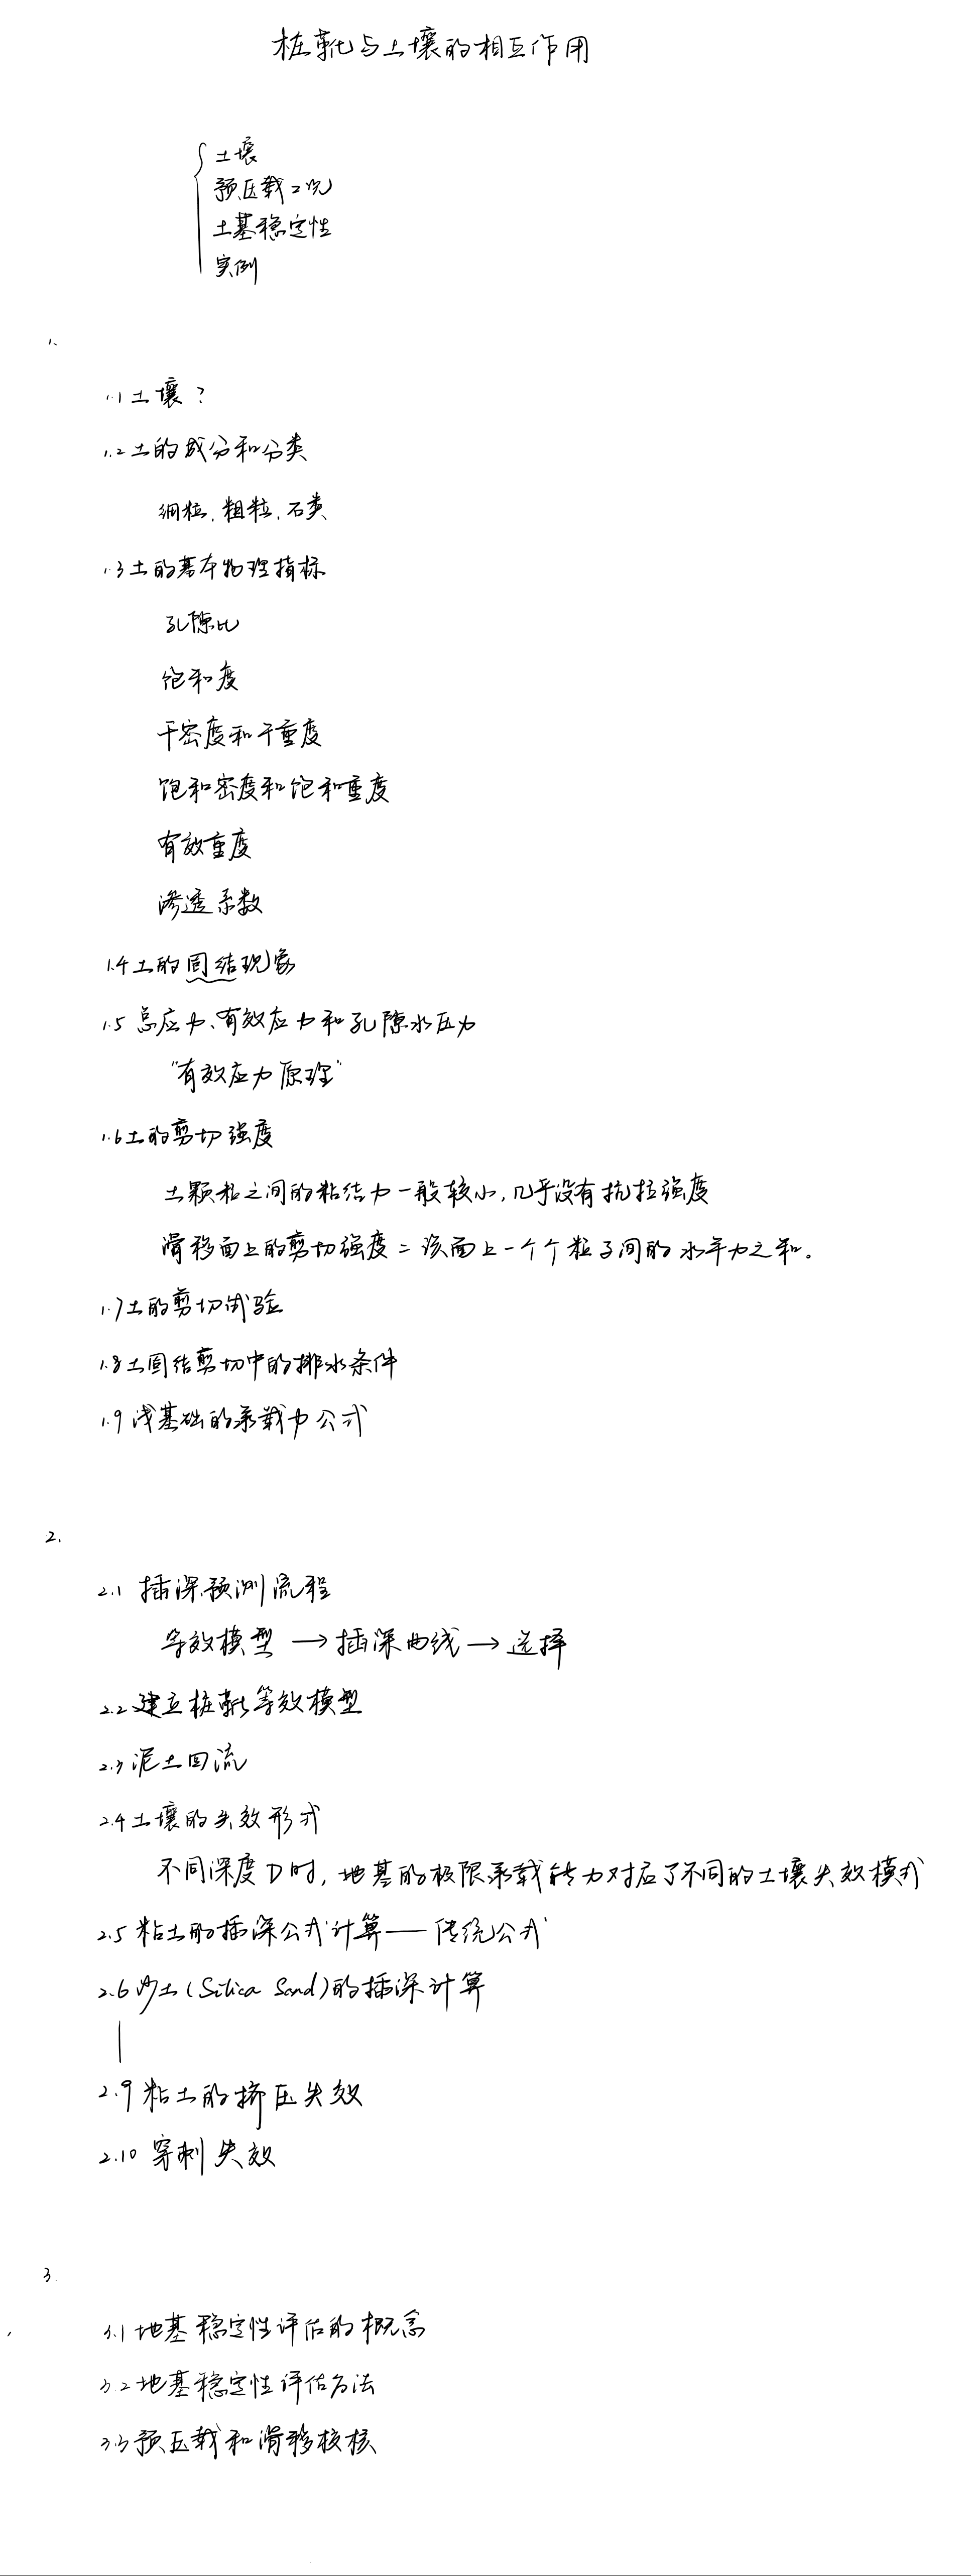 桩靴与土壤的相互作用
土壤
预压载工况
土基稳定性
实例
1.
1.1 土壤？
1.2 土的成分和分类
细粒、粗粒、石类
1.3 土的基本物理指标
孔隙比
饱和度
干密度和干重度
饱和密度和饱和重度
有效重度
渗透系数
1.4 土的固结现象
1.5 总应力、有效应力和孔隙水压力
"有效应力原理"
1.6 土的剪切强度
土颗粒之间的粘结力一般较小，几乎没有抗拉强度
滑移面上的剪切强度 = 该面上一个个粒子间的水平力之和。
1.7 土的剪切试验
1.8 土固结剪切中的排水条件
1.9 浅基础的承载力公式
2.
2.1 插深预测流程
等效模型 → 插深曲线 → 选择
2.2 建立桩靴等效模型
2.3 泥土回流
2.4 土壤的失效形式
不同深度D时，地基的极限承载能力对应了不同的土壤失效模式
2.5 粘土的插深公式计算——传统公式
2.6 沙土(Silica Sand)的插深计算
|
2.9 粘土的挤压失效
2.10 穿刺失效
3.
3.1 地基稳定性评估的概念
3.2 地基稳定性评估方法
3.3 预压载和滑移校核